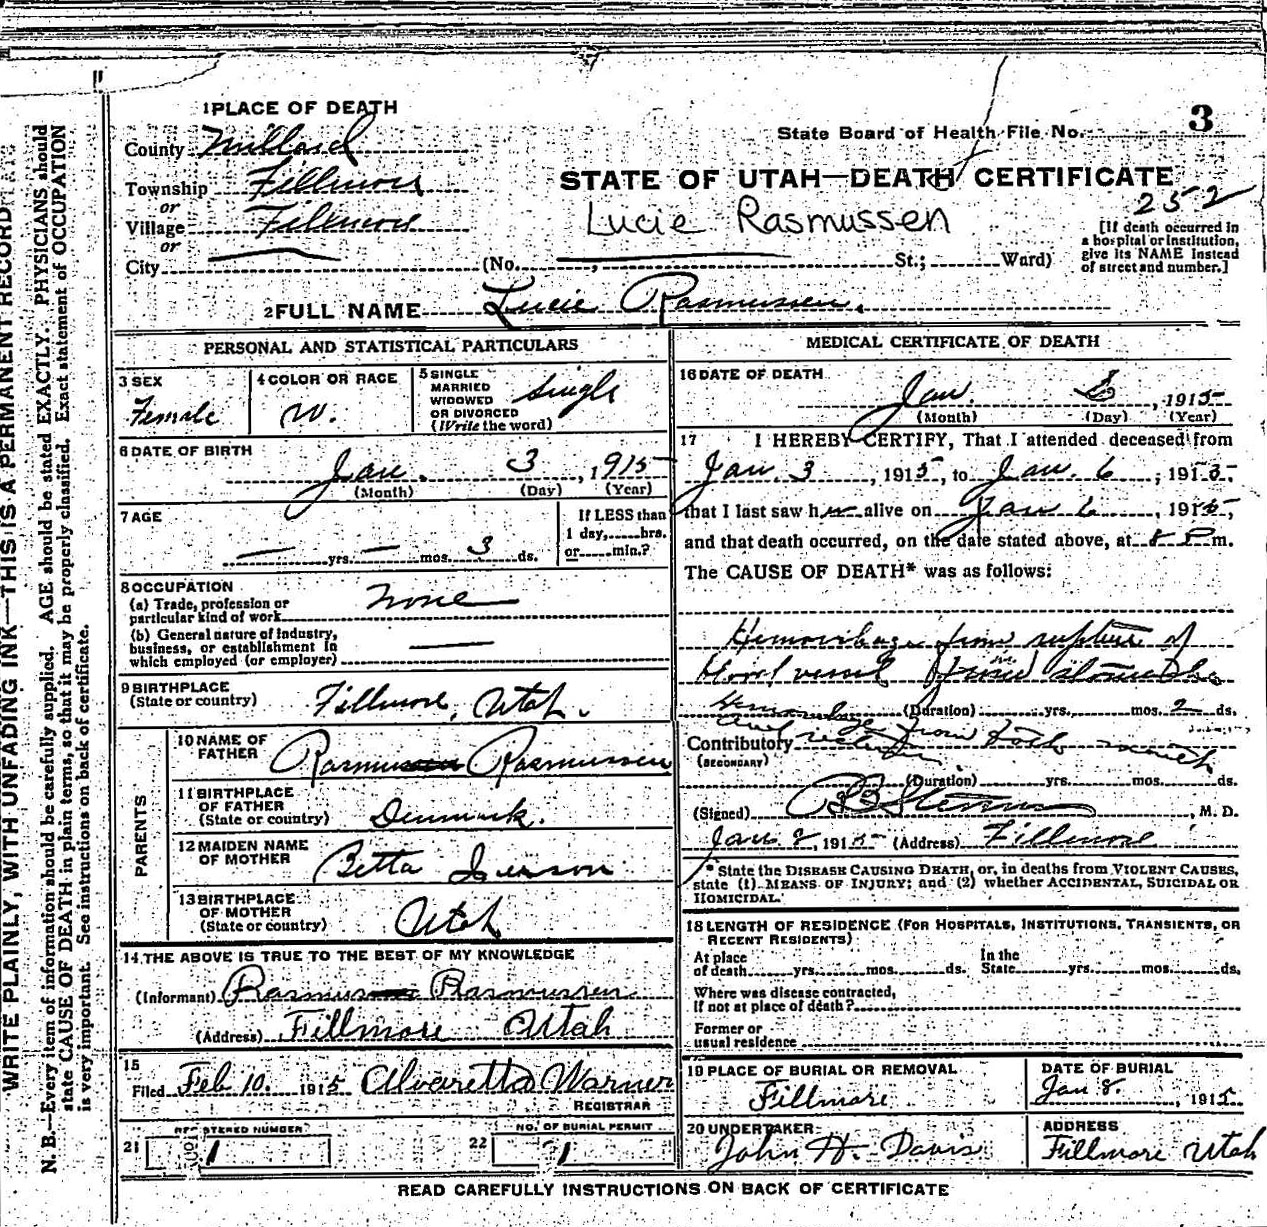 1 PLACE OF DEATH
State Board of Health File No. 3
County Millard
STATE OF UTAH—DEATH CERTIFICATE
Township Fillmore
or
252
Village Fillmore
Lucie Rasmussen
or
[If death occurred in
a hospital or institution,
give its NAME instead
of street and number.]
City (No. , St.; Ward)
2 FULL NAME Lucie Rasmussen.
PERSONAL AND STATISTICAL PARTICULARS
3 SEX
Female
4 COLOR OR RACE
W.
5 SINGLE
MARRIED
WIDOWED
OR DIVORCED
(Write the word)
Single
6 DATE OF BIRTH
Jan. 3, 1915
(Month) (Day) (Year)
7 AGE
— yrs. — mos. 3 ds.
If LESS than
1 day, hrs.
or min.?
8 OCCUPATION
(a) Trade, profession or
particular kind of work None
(b) General nature of industry,
business, or establishment in
which employed (or employer) —
9 BIRTHPLACE
(State or country) Fillmore, Utah.
PARENTS
10 NAME OF
FATHER Rasmussen Rasmussen
11 BIRTHPLACE
OF FATHER
(State or country) Denmark.
12 MAIDEN NAME
OF MOTHER Betta
13 BIRTHPLACE
OF MOTHER
(State or country) Utah
14 THE ABOVE IS TRUE TO THE BEST OF MY KNOWLEDGE
(Informant) Rasmus Rasmussen
(Address) Fillmore Utah
15
Filed Feb 10. 1915 Alvaretta Warner
REGISTRAR
21 REGISTERED NUMBER
1
22 NO. OF BURIAL PERMIT
1
MEDICAL CERTIFICATE OF DEATH
16 DATE OF DEATH
Jan. 6, 1915
(Month) (Day) (Year)
17 I HEREBY CERTIFY, That I attended deceased from
Jan. 3, 1915, to Jan. 6, 1915,
that I last saw her alive on Jan 6, 1915,
and that death occurred, on the date stated above, at 8 P m.
The CAUSE OF DEATH* was as follows:
Hemorrhage from rupture of
blood vessel in stomach
(Duration) yrs. mos. 2 ds.
Hemorrhage from both mouth
Contributory and rectum
(SECONDARY)
(Duration) yrs. mos. ds.
(Signed) Stevens, M. D.
Jan 8, 1915 (Address) Fillmore
* State the DISEASE CAUSING DEATH, or, in deaths from VIOLENT CAUSES,
state (1) MEANS OF INJURY; and (2) whether ACCIDENTAL, SUICIDAL OR
HOMICIDAL.
18 LENGTH OF RESIDENCE (FOR HOSPITALS, INSTITUTIONS, TRANSIENTS, OR
RECENT RESIDENTS)
At place
of death yrs. mos. ds.
In the
State yrs. mos. ds.
Where was disease contracted,
if not at place of death?
Former or
usual residence
19 PLACE OF BURIAL OR REMOVAL
Fillmore
DATE OF BURIAL
Jan 8. , 1915
20 UNDERTAKER
John H. Davis
ADDRESS
Fillmore Utah
READ CAREFULLY INSTRUCTIONS ON BACK OF CERTIFICATE
WRITE PLAINLY, WITH UNFADING INK—THIS IS A PERMANENT RECORD
N. B.—Every item of information should be carefully supplied. AGE should be stated EXACTLY. PHYSICIANS should
state CAUSE OF DEATH in plain terms, so that it may be properly classified. Exact statement of OCCUPATION
is very important. See instructions on back of certificate.